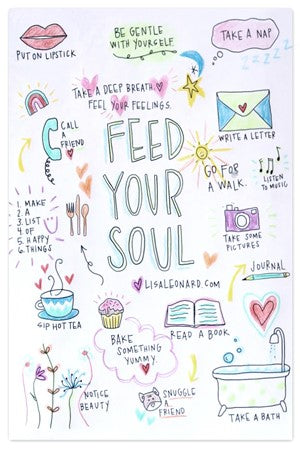 PUT ON LIPSTICK
BE GENTLE
WITH YOURSELF.
TAKE A NAP
ZZZZZ
TAKE A DEEP BREATH.
FEEL YOUR FEELINGS.
CALL
A
FRIEND
WRITE A LETTER
FEED
YOUR
SOUL
GO FOR
A WALK.
LISTEN
TO MUSIC
1. MAKE
2. A
3. LIST
4. OF
5. HAPPY
6. THINGS
TAKE SOME
PICTURES
LISALEONARD.COM
JOURNAL
SIP HOT TEA
BAKE
SOMETHING
YUMMY
READ A BOOK
NOTICE
BEAUTY
SNUGGLE
A
FRIEND
TAKE A BATH